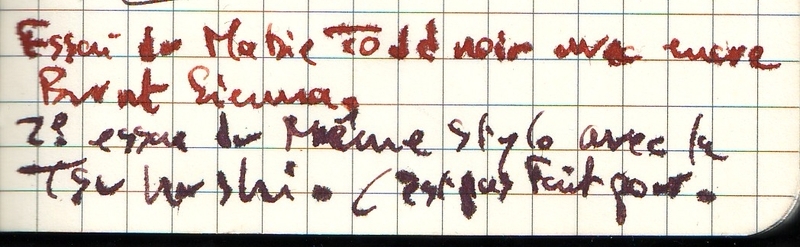 Essai du Mabie Todd noir avec encre
Burnt Sienna.
2e essai du Même stylo avec la
Tsukushi. (est pas Fait pour.